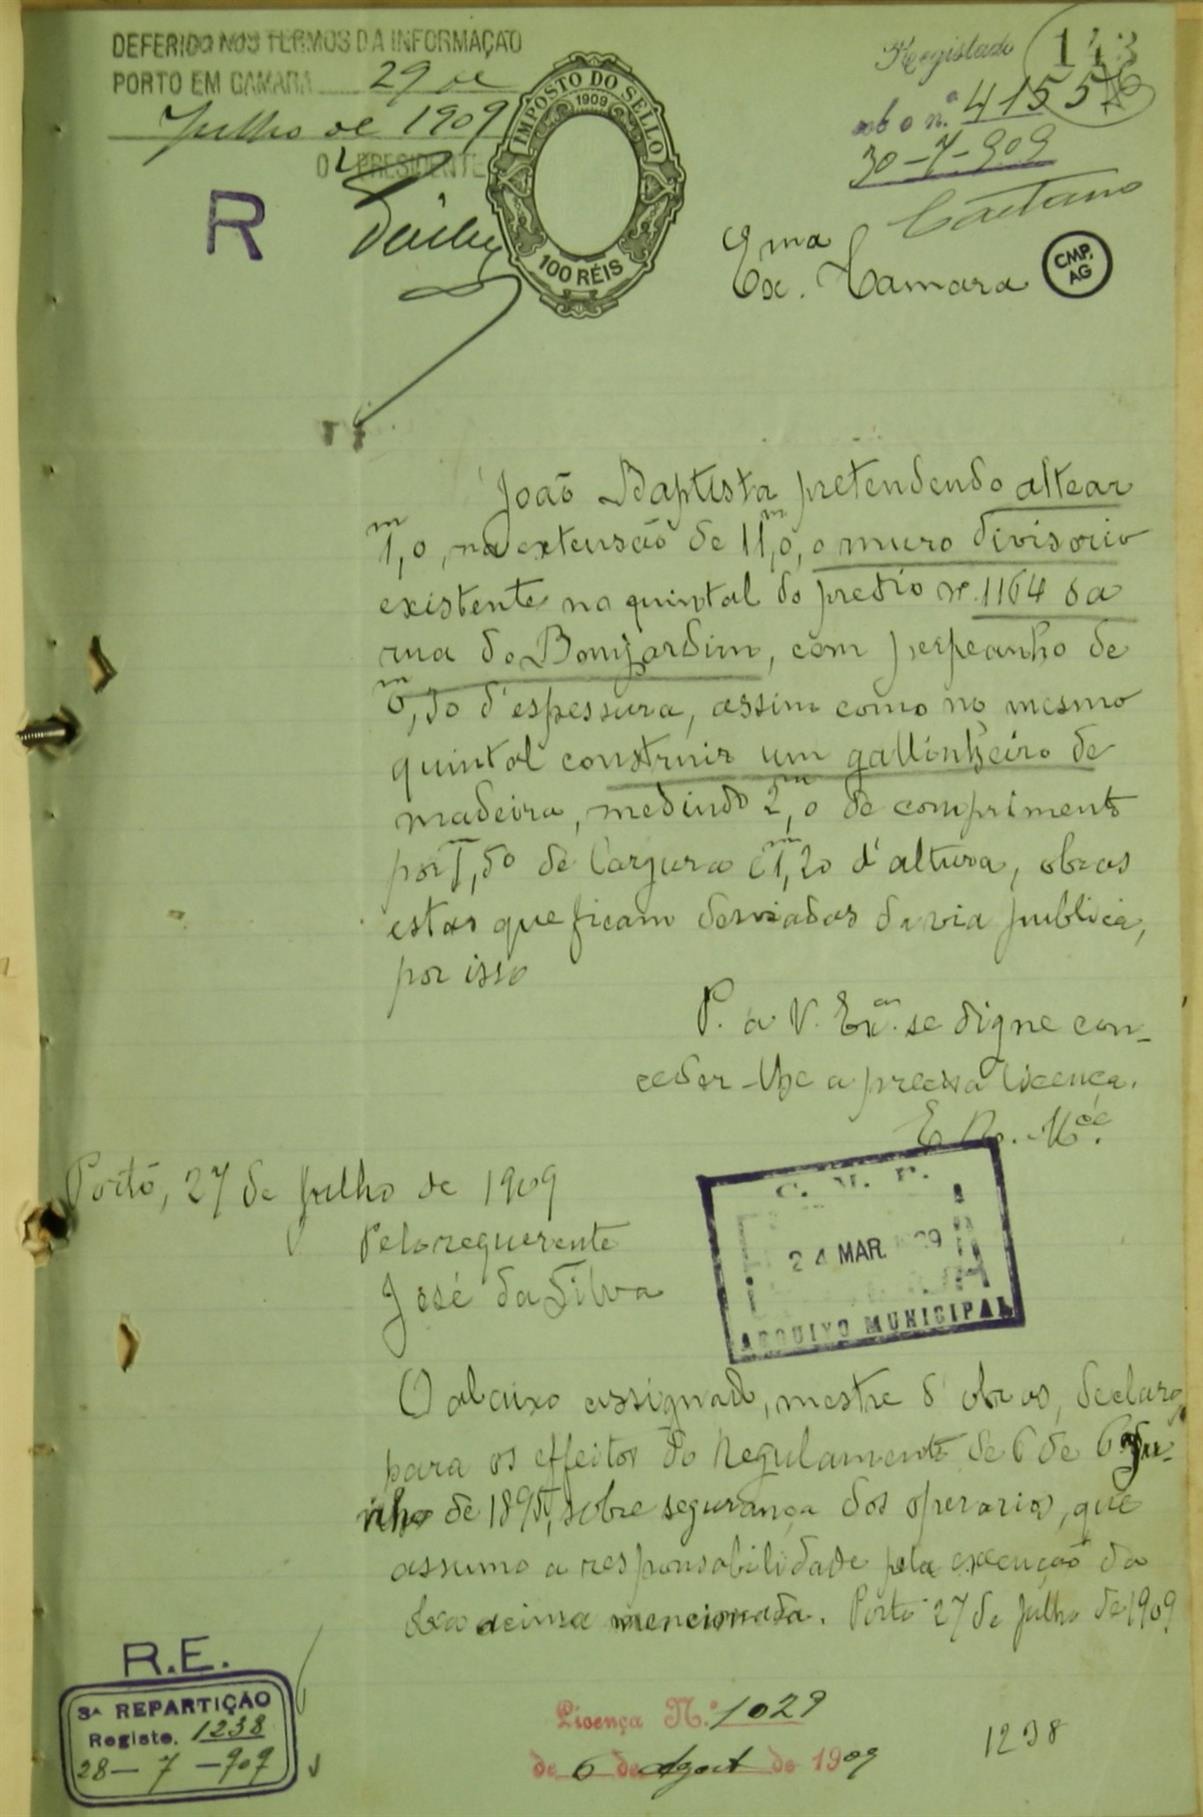 DEFERIDO NOS TERMOS DA INFORMAÇÃO
PORTO EM CAMARA 29 de
Julho de 1909
O PRESIDENTE
R
IMPOSTO DO SELLO
1909
100 RÉIS
Registado
sob o n.º 4155
30-7-909
Caetano
143
Ex.ma Camara
CMP.
AG
João Baptista pretendendo altear
1,m0, na extensão de 11,m0, o muro divisorio
existente no quintal do predio nº. 1164 da
rua do Bomjardim, com perpeanho de
0,m30 d'espessura, assim como no mesmo
quintal construir um gallinheiro de
madeira, medindo 2,m0 de comprimento
por 1,m50 de largura e 1,m20 d'altura, obras
estas que ficam desviadas da via publica,
por isso
P. a V. Ex.as se digne con-
ceder-lhe a precisa licença.
E. R. M.ce
Porto, 27 de Julho de 1909
Pelo requerente
José da Silva
C. M. P.
24 MAR.
ARQUIVO MUNICIPAL
O abaixo assignado, mestre d'obras, declara,
para os effeitos do Regulamento de 6 de Ju-
nho de 1895, sobre segurança dos operarios, que
assumo a responsabilidade pela execução da
obra acima mencionada. Porto 27 de Julho de 1909
R.E.
3ª REPARTIÇÃO
Registo. 1238
28-7-909
Licença N.º 1029
de 6 de Agosto de 1909
1238